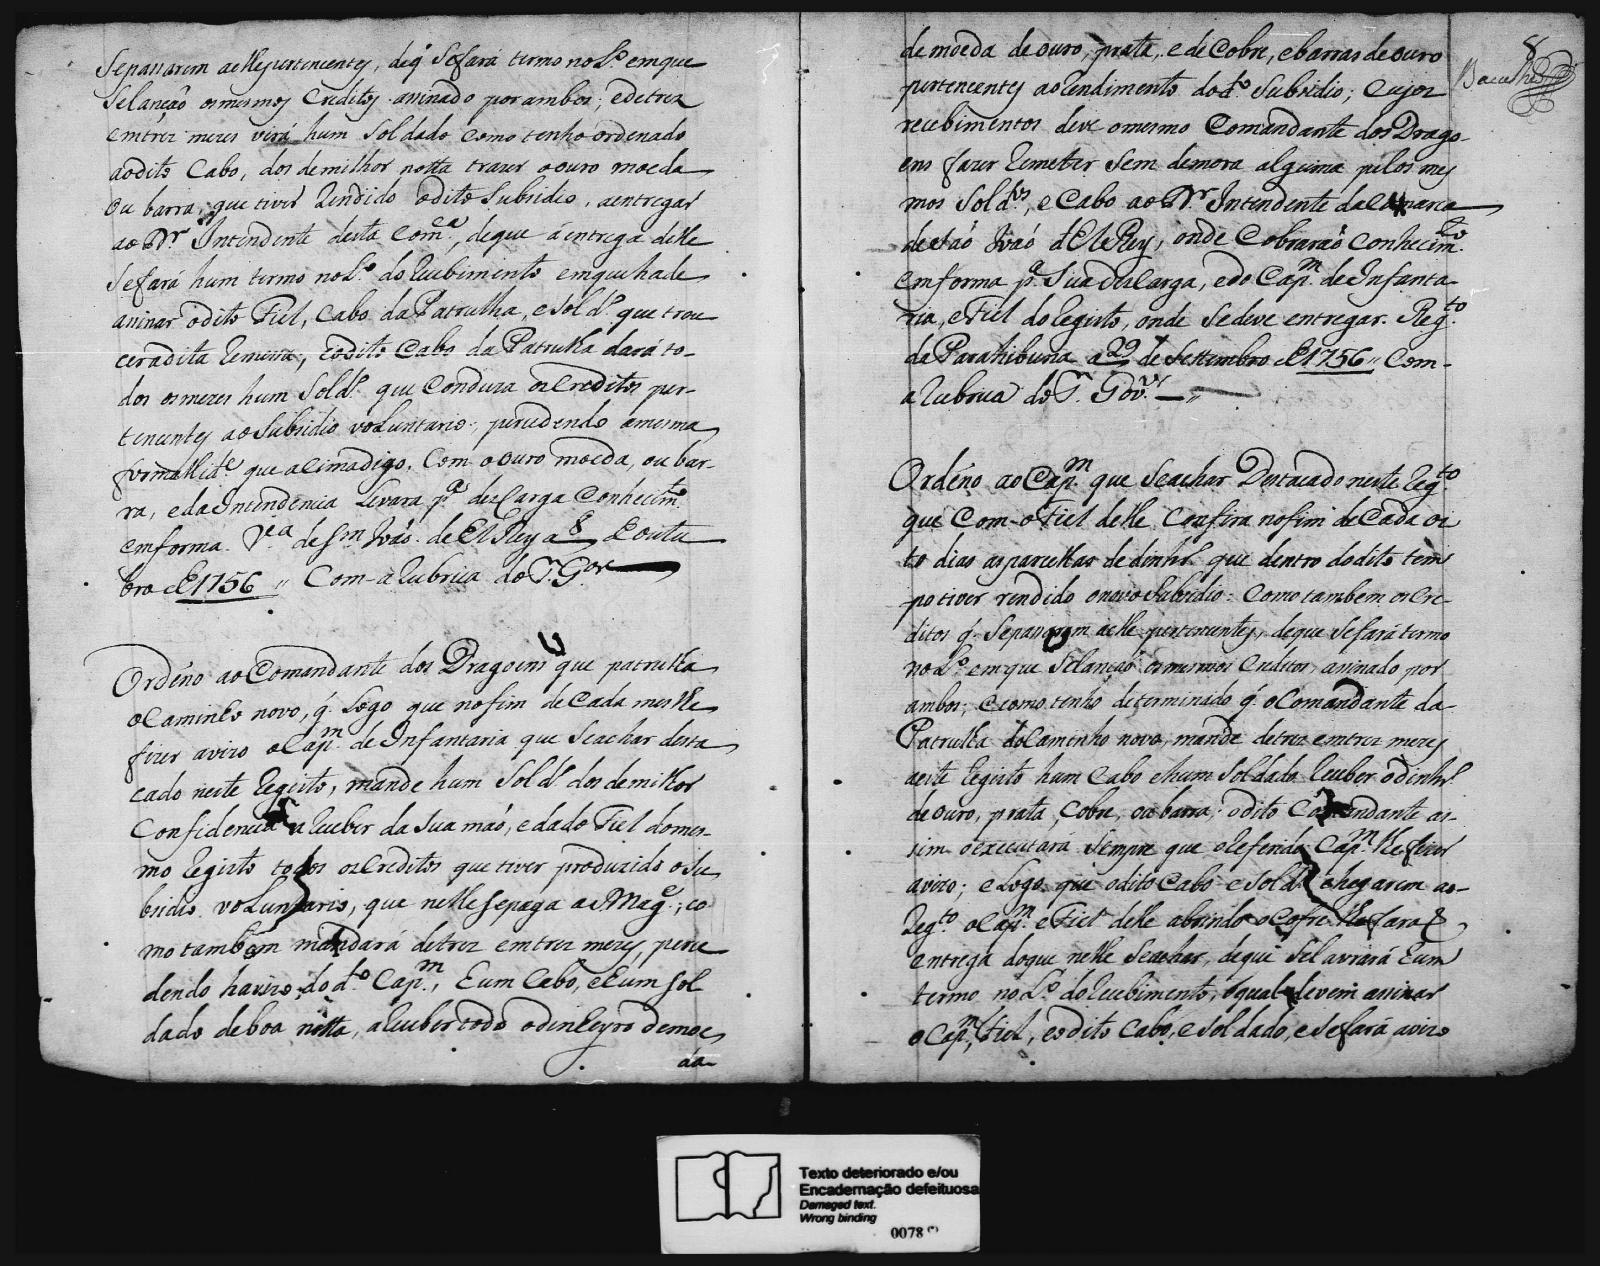 Sepassarem aelle pertencentes, deq̃ Sefará termo no L.º emque
Selanção osmesmos Creditos assinado por ambos; edetrez
emtrez mezes virá hum Soldado como tenho ordenado
aodito Cabo, dos demilhor notta trazer o ouro moeda
ou barra, que tiver Rendido odito Subsidio, aentregar
ao D.r Intendente desta Com.ca, deque á entrega delle
Sefará hum termo no L.º do Recebimento emque hade
assinar odito Fiel, Cabo da Patrulha, e Sold.º que trou
cer adita Remessa; eodito Cabo da Patrulha dará to-
dos os mezes hum Sold.º que Conduza os Creditos per-
tencentes ao Subsidio voluntario, precedendo amesma
formallid.e que aSima digo. Com o ouro moeda, ou bar-
ra, e da Intendencia Levara p.a desCarga Conhecim.to
emforma. V.a de S.m Joaó de El Rey a 8 de outu
bro de 1756 // Com a Rubrica do S.r G.or
Ordéno ao Comandante dos Dragoens que patrulha
o Caminho novo, q̃ Logo que nofim de Cada mes lhe
fizer avizo o Cap.m de Infantaria que Seachar desta
cado neste Registo, mande hum Sold.º dos de milhor
Confidencia a Receber da Sua maó, e dado Fiel domes-
mo Registo todos os Creditos que tiver produzido o Su
bsidio voluntario, que nelle Sepaga a S Mag.e; co
mo tambem mandará detrez emtrez mezes, prece
dendo havizo do d.to Cap.m, Eum Cabo, e Eum Sol
dado de boa notta, aReceber todo o dinheyro demoe
da
8
de moeda de ouro, prata, e de Cobre, e barras de ouro
pertencentes ao Rendimento do d.º Subsidio; Cujos
recebimentos deve omesmo Comandante dos Drago-
ens fazer Remeter Sem demora alguma pelos mes
mos Sold.os, e Cabo ao D.r Intendente da Comarca
de Saó Joaó d'El Rey, onde Cobraraó Conhecim.to
emforma p.a Sua desCarga, e do Cap.m de Infanta-
ria, e Fiel do Registo, onde Se deve entregar. Reg.to
da Parahibuna a 29 de Settembro de 1756 // Com-
a Rubrica do S.r Gov.or
Ordéno ao Cap.m que Seachar Destacado neste Reg.to
que Com o Fiel delle Confira nofim de Cada oi
to dias as parcellas de dinhr.º que dentro dodito tem
po tiver rendido o novo Subsidio: Como tambem os Cre-
ditos q̃ Sepassarem aelle pertencentes, deque Sefará termo
no L.º emque Selançaó osmesmos Creditos, assinado por
ambos; e como tenho determinado q̃ o Comandante da
Patrulha do Caminho novo, mande detrez emtrez mezes
aeste Registo hum Cabo e hum Soldado Receber o dinhr.º
de ouro, prata, Cobre, ou barra; odito Comandante as-
sim o executará Sempre que o Referido Cap.m lhe fizer
avizo; e Logo que odito Cabo e Sold.º chegarem ao-
Reg.to o Cap.m e Fiel delle abrindo o Cofre lhe fara a
entrega doque nelle Seachar, deque Se Lavrará Eum
termo no L.º do Recebimento, oqual devem assinar
o Cap.m, Fiel, eodito Cabo, e Soldado, e Sefará avizo
Texto deteriorado e/ou
Encadernação defeituosa
Damaged text.
Wrong binding
0078